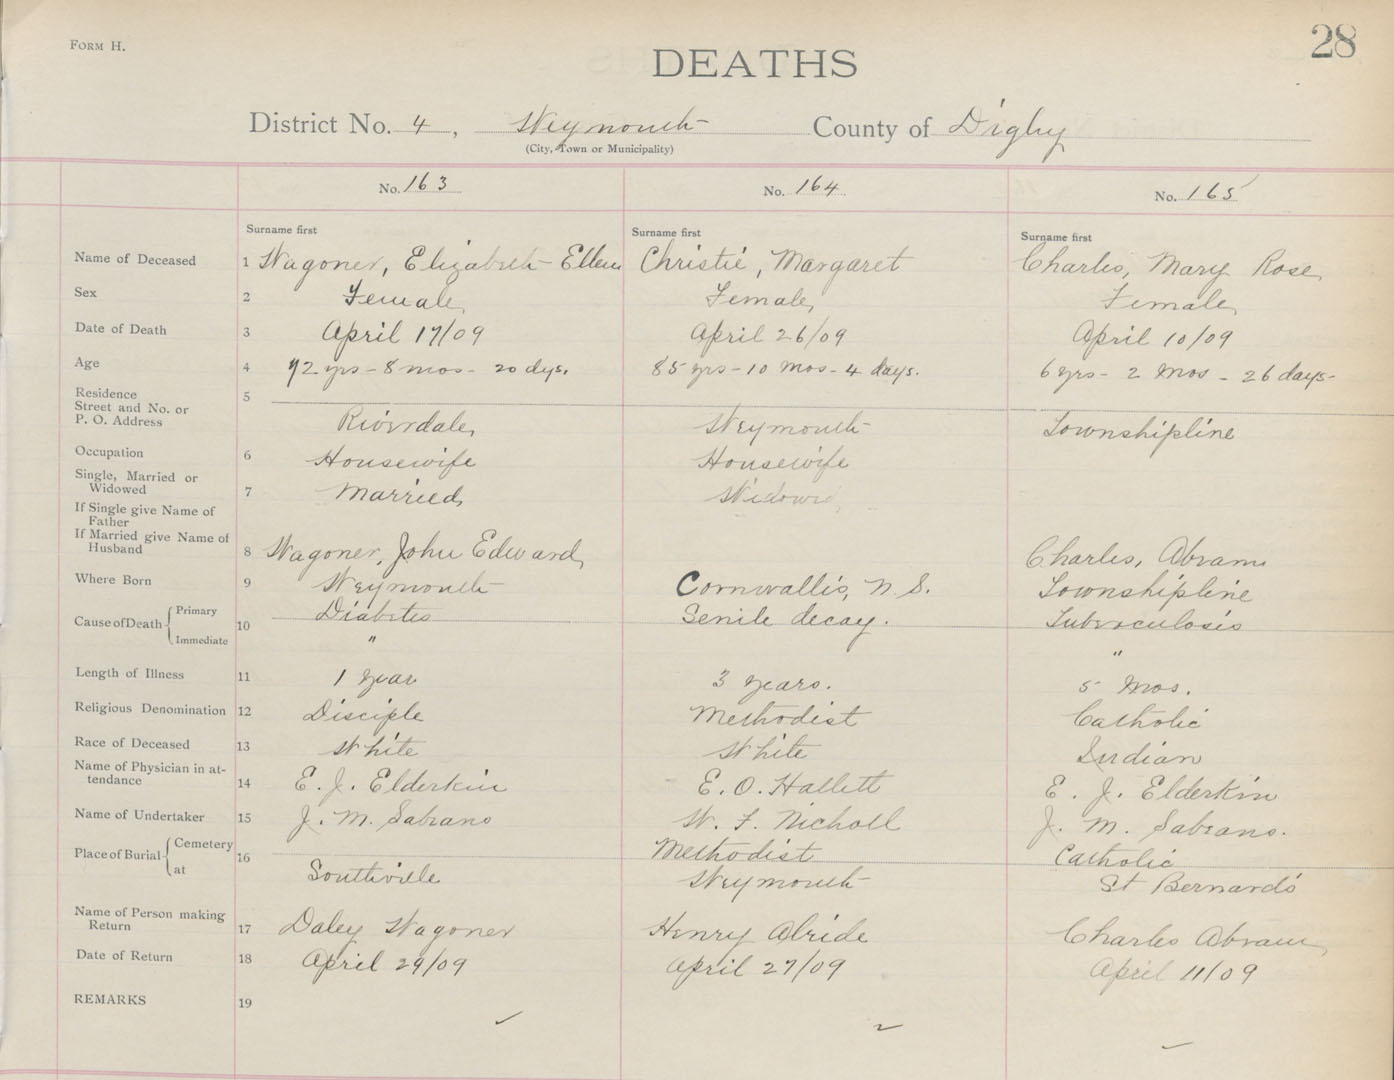 Form H.
28
DEATHS
District No. 4, Weymouth County of Digby
(City, Town or Municipality)
No. 163 No. 164 No. 165
Surname first Surname first Surname first
Name of Deceased 1 Wagoner, Elizabeth Ellen Christie, Margaret Charles, Mary Rose
Sex 2 Female Female Female
Date of Death 3 April 17/09 April 26/09 April 10/09
Age 4 72 yrs - 8 mos - 20 dys. 85 yrs - 10 mos - 4 days. 6 yrs - 2 mos - 26 days -
Residence 5
Street and No. or
P. O. Address Riverdale Weymouth Townshipline
Occupation 6 Housewife Housewife
Single, Married or
Widowed 7 Married Widowed
If Single give Name of
Father
If Married give Name of
Husband 8 Wagoner, John Edward Charles, Abram
Where Born 9 Weymouth Cornwallis, N. S. Townshipline
Cause of Death Primary 10 Diabetes Senile decay. Tuberculosis
Immediate " "
Length of Illness 11 1 year 3 years. 5 mos.
Religious Denomination 12 Disciple Methodist Catholic
Race of Deceased 13 White White Indian
Name of Physician in at-
tendance 14 E. J. Elderkin E. O. Hallett E. J. Elderkin
Name of Undertaker 15 J. M. Sabeans W. F. Nicholl J. M. Sabeans.
Place of Burial Cemetery 16 Methodist Catholic
at Southville Weymouth St Bernards
Name of Person making
Return 17 Daley Wagoner Henry Charles Abram
Date of Return 18 April 29/09 April 27/09 April 11/09
REMARKS 19